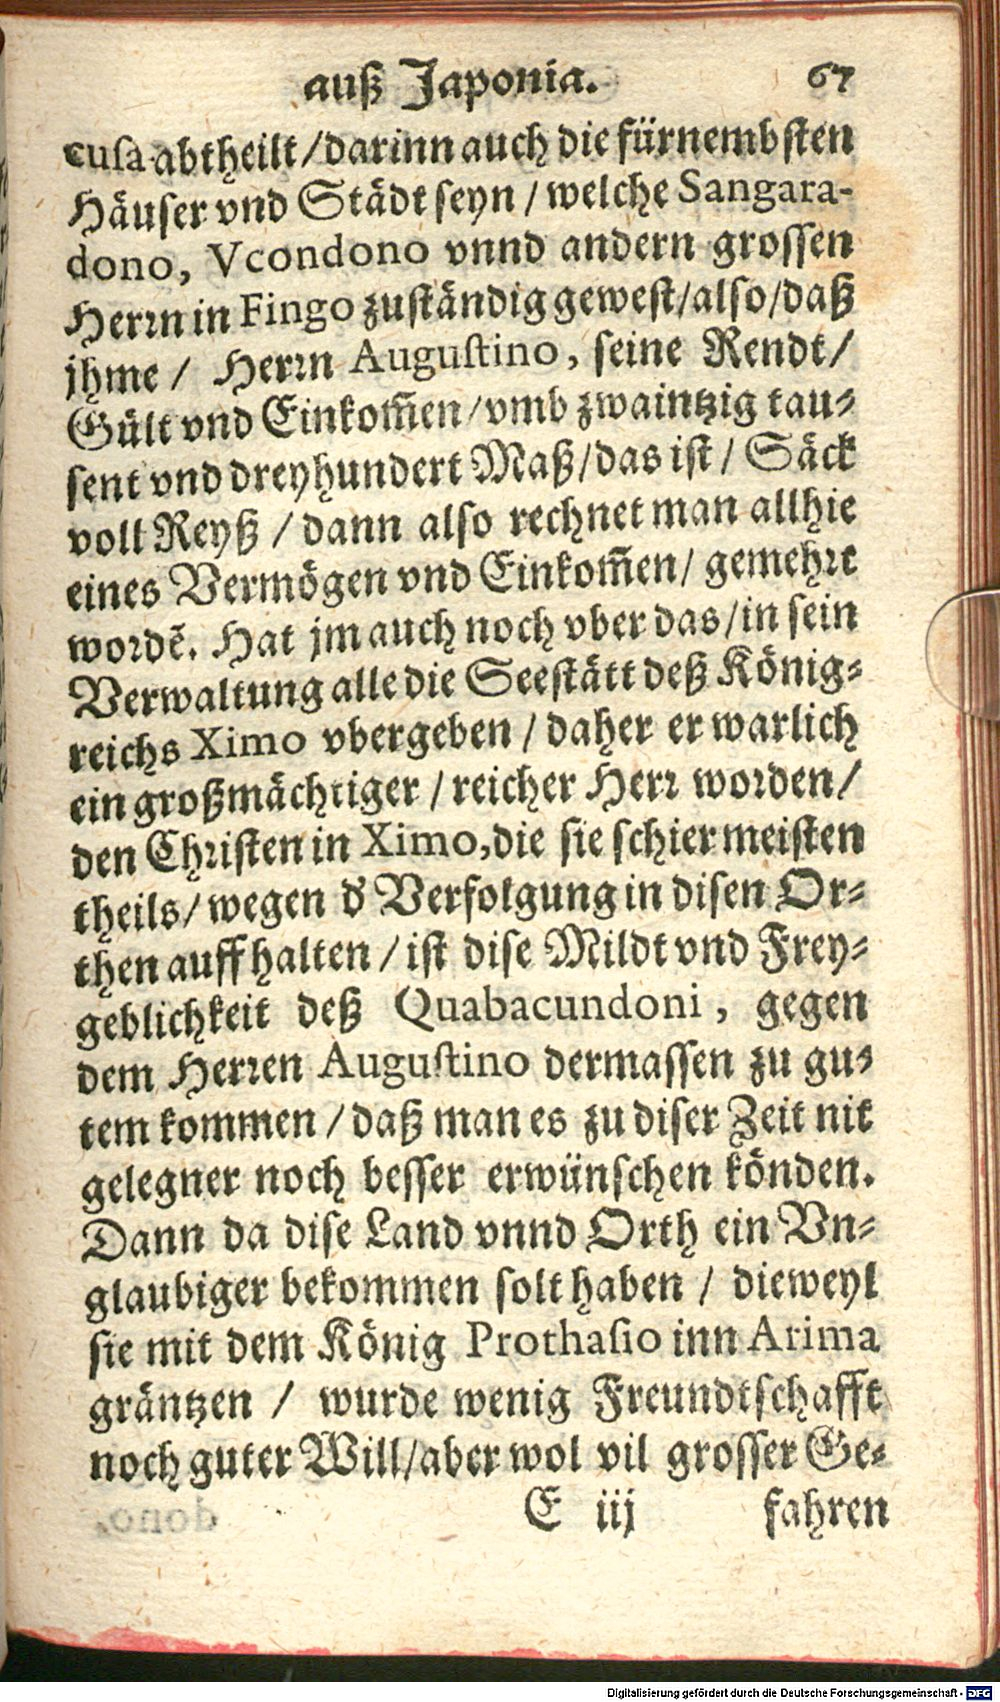 auß Japonia. 67
cusa abtheilt / darinn auch die fürnembsten
Häuser vnd Städt seyn / welche Sangara-
dono, Vcondono vnnd andern grossen
Herrn in Fingo zuständig gewest / also / daß
jhme / Herrn Augustino, seine Rendt /
Gült vnd Einkom̃en / vmb zwaintzig tau-
sent vnd dreyhundert Maß / das ist / Säck
voll Reyß / dann also rechnet man allhie
eines Vermögen vnd Einkom̃en / gemehrt
wordẽ. Hat jm auch noch vber das / in sein
Verwaltung alle die Seestätt deß König-
reichs Ximo vbergeben / daher er warlich
ein großmächtiger / reicher Herr worden /
den Christen in Ximo, die sie schier meisten
theils / wegen d' Verfolgung in disen Or-
then auffhalten / ist dise Mildt vnd Frey-
geblichkeit deß Quabacundoni, gegen
dem Herren Augustino dermassen zu gu-
tem kommen / daß man es zu diser Zeit nit
gelegner noch besser erwünschen könden.
Dann da dise Land vnnd Orth ein Vn-
glaubiger bekommen solt haben / dieweyl
sie mit dem König Prothasio inn Arima
gräntzen / wurde wenig Freundtschafft
noch guter Will / aber wol vil grosser Ge-
E iij fahren
Digitalisierung gefördert durch die Deutsche Forschungsgemeinschaft - DFG